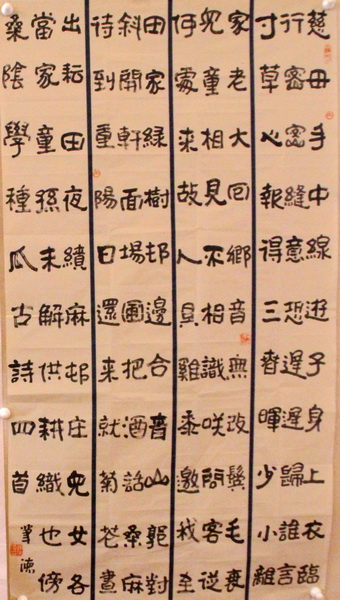 慈母手中線遊子身上衣臨
行密密縫意恐遲遲歸誰言
寸草心報得三春暉少小離
家老大回鄉音無改鬢毛衰
兒童相見不相識咲問客從
何處來故人具雞黍邀我至
田家綠樹邨邊合青山郭對
斜開軒面場圃把酒話桑麻
待到重陽日還來就菊花晝
出耘田夜績麻邨莊兒女各
當家童孫未解供耕織也傍
桑陰學種瓜古詩四首